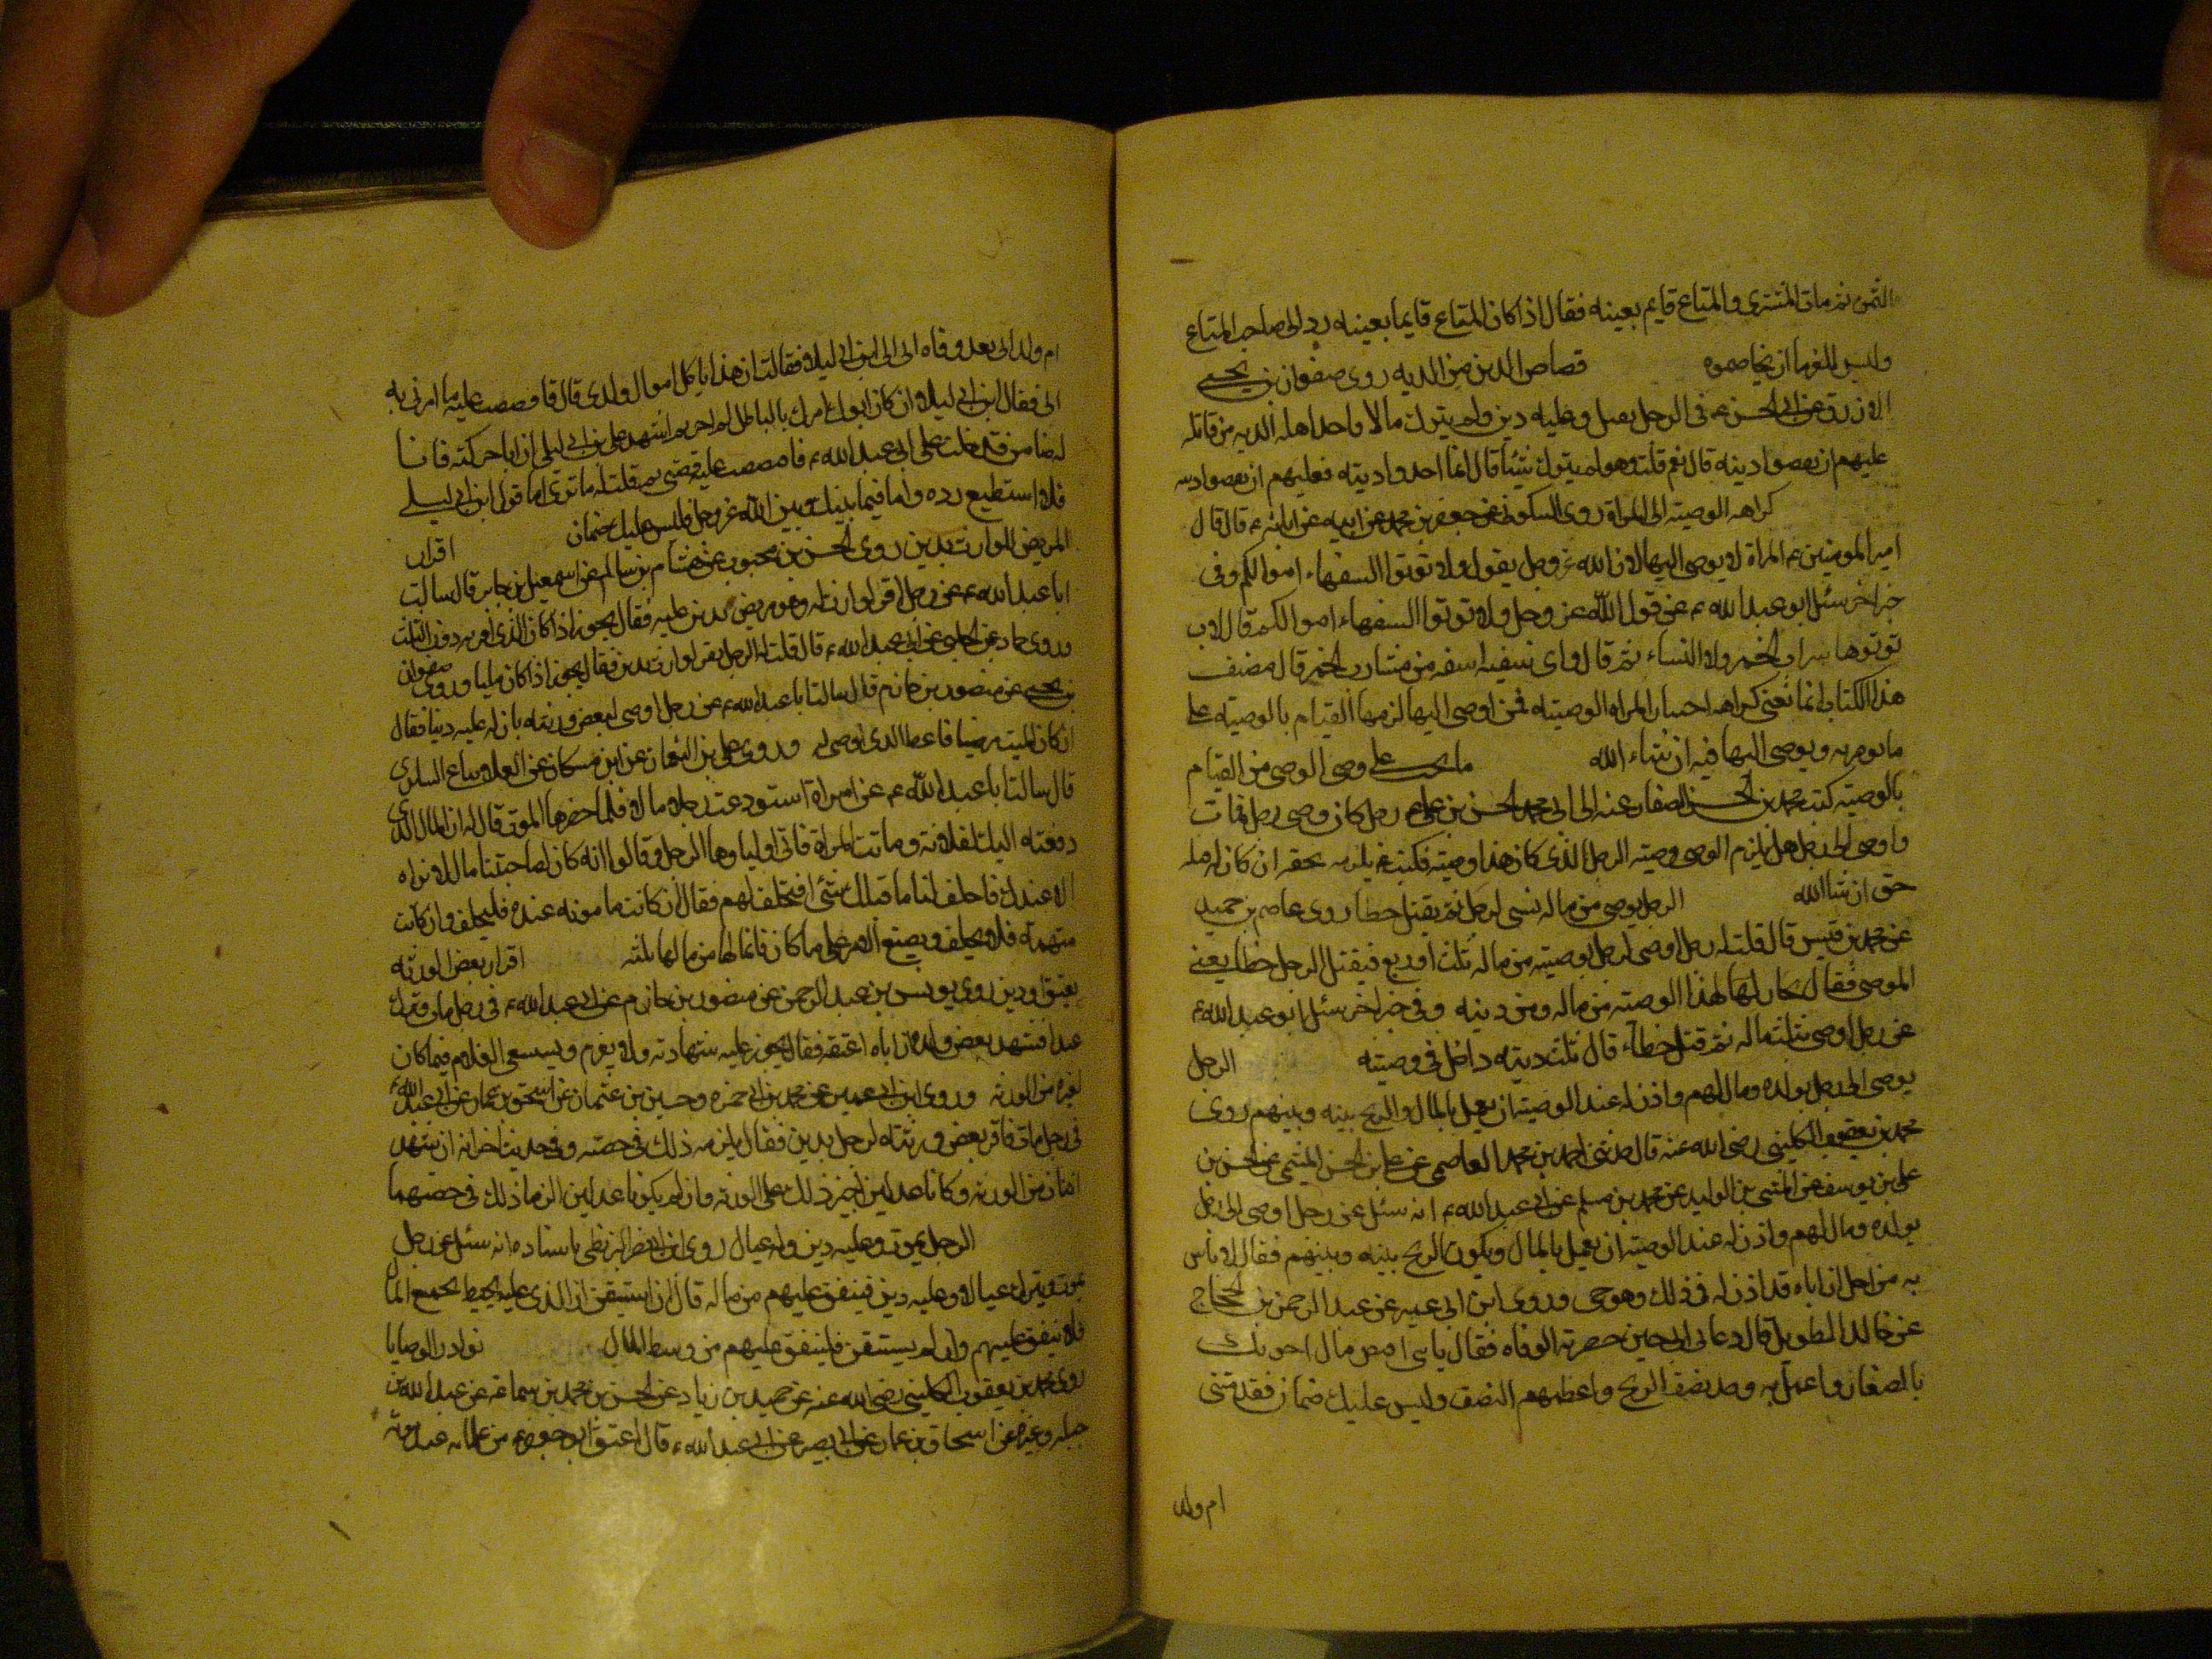 الثمن ثم مات المشتري والمتاع قايم بعينه فقال اذا كان المتاع قايما بعينه رد الى صاحب المتاع
وليس للغرما ان يخاصموه قصاص الدين من الديه روى صفوان بن يحيى
الازرق عن ابى الحسن ع فى الرجل يقتل وعليه دين ولم يترك مالا واخذ اهله الديه من قاتله
عليهم ان يقضوا دينه قال نعم قلت وهو لم يترك شيئا قال انما اخذوا ديته فعليهم ان يقضوا دينه
كراهه الوصيته الى المراة روى السكونى عن جعفر بن محمد عن ابيه عن ابائه ع قال قال
امير المومنين ع المراة لا يوصى اليها لان الله عز وجل يقول ولا توتوا السفهاء اموالكم وفى
خبر اخر سئل ابو عبد الله ع عن قول الله عز وجل ولا توتوا السفهاء اموالكم قال لا
توتوها شراب الخمر ولا النساء ثم قال واى سفيه اسفه من شارب الخمر قال مصنف
هذا الكتاب انما تعنى كراهه اختيار المراه للوصيته فمن اوصى اليها لزمها القيام بالوصيته على
ما تومر به ويوصى اليها فيه ان شاء الله ما يجب على وصى الوصى من القيام
بالوصيته كتب محمد بن الحسن الصفار عنه الى ابى محمد الحسن بن على ع رجل كان وصى رجل فمات
واوصى الى رجل هل يلزم الوصى وصيته الرجل الذى كان هذا وصيته فكتب ع يلزمه بحقه ان كان له قبله
حق ان شا الله الرجل يوصى من ماله بشى لرجل ثم يقتل خطا روى عاصم بن حميد
عن محمد بن قيس قال قلت له رجل اوصى لرجل بوصيته من ماله ثلث او ربع فيقتل الرجل خطا يعنى
الموصى فقال يحاز لهذا الوصته من ماله ومن ديته وفى خبر اخر سئل ابو عبد الله ع
عن رجل اوصى بثلث ماله ثم قتل خطاء قال ثلث ديته داخل فى وصيته الرجل
يوصى الى رجل بولده ومال لهم واذن له عند الوصيته ان يعمل بالمال والربح بينه وبينهم روى
محمد بن يعقوب الكلينى رضى الله عنه قال حدثنى احمد بن محمد العاصمى عن على بن الحسن الميثمى عن الحسن بن
على بن يوسف عن المثنى بن الوليد عن محمد بن مسلم عن ابى عبد الله ع انه سئل عن رجل اوصى الى رجل
بولده ومال لهم واذن له عند الوصيته ان يعمل بالمال ويكون الربح بينه وبينهم فقال لا باس
به من اجل ان اباه قد اذن له فى ذلك وهو حى وروى ابن ابى عمير عن عبد الرحمن بن الحجاج
عن خالد الطويل قال دعانى ابى حين حضرته الوفاه فقال يا بنى اقبض مال اخوتك
الصغار واعمل به وخذ نصف الربح واعطهم النصف وليس عليك ضمان فقدمتنى
ام ولد
ام ولد ابى بعد وفاه ابى الى ابن ابى ليلا فقالت ان هذا ياكل اموال ولدى قال فاقصصت عليه ما امرنى به
ابى فقال ابن ابى ليلا وان كان ابوك امرك بالباطل لم اجزه ثم اشهد على ابن ابى ليلى ان انا حركته فانا
له ضامن فدخلت على ابى عبد الله ع فاقصصت عليه قصتى ثم قلت له ما ترى اما قول ابن ابى ليلى
فلا استطيع رده واما فيما بينك وبين الله عز وجل فليس عليك ضمان اقرار
المريض للوارث بدين روى الحسن بن محبوب عن هشام بن سالم عن اسمعيل بن جابر قال سالت
ابا عبد الله ع عن رجل اقر لوارث له وهو مريض بدين عليه فقال يجوز اذا كان الذى اقر به دون الثلث
وروى حماد عن الحلبى عن ابى عبد الله ع قال قلت له الرجل يقر لوارث بدين فقال يجوز اذا كان مليا وروى صفوان
بن يحيى عن منصور بن حازم قال سالت ابا عبد الله ع عن رجل اوصى لبعض ورثته بان له عليه دينا فقال
ان كان الميت مرضيا فاعط الذى اوصى له وروى على بن النعمان عن ابن مسكان عن العلا بياع السابرى
قال سالت ابا عبد الله ع عن امراة استودعت رجلا مالا فلما حضرها الموت قال له ان المال الذى
دفعته اليك لفلانه وماتت المراة فاتى اولياوها الرجل وقالوا انه كان لصاحبتنا مال لا نراه
الا عندك فاحلف لنا ما قبلك شئ افيحلف لهم فقال ان كانت مامونه عنده فليحلف وان كانت
متهمة فلا يحلف ويصنع الامر على ما كان فانما لها من مالها ثلثه اقرار بعض الورثه
بعتق او دين روى يونس بن عبد الرحمن عن منصور بن حازم عن ابى عبد الله ع فى رجل مات وترك
عبدا فشهد بعض ولده ان اباه اعتقه فقال يجوز عليه شهادته ولا يغرم ويستسعى الغلام فيما كان
لغيره من الورثه وروى ابن ابى عمير عن محمد بن ابى حمزه وحسين بن عثمان عن اسحق بن عمار عن ابى عبد الله ع
فى رجل مات فاقر بعض ورثته لرجل بدين فقال يلزمه ذلك فى حصته وفى حديث اخر انه ان شهد
اثنان من الورثه وكانا عدلين اجيز ذلك على الورثه وان لم يكونا عدلين الزما ذلك فى حصتهما
الرجل يموت وعليه دين وله عيال روى ابن ابى نصر البزنطى باسناده انه سئل عن رجل
يموت ويترك عيالا وعليه دين فينفق عليهم من ماله قال ان استيقن ان الذى عليه يحيط بجميع المال
فلا ينفق عليهم وان لم يستيقن فلينفق عليهم من وسط المال نوادر الوصايا
روى محمد بن يعقوب الكلينى رضى الله عنه عن حميد بن زياد عن الحسن بن محمد بن سماعه عن عبد الله بن
جبله وغيره عن اسحاق بن عمار عن ابى بصير عن ابى عبد الله ع قال اعتق ابو جعفر ع من غلمانه عند موته